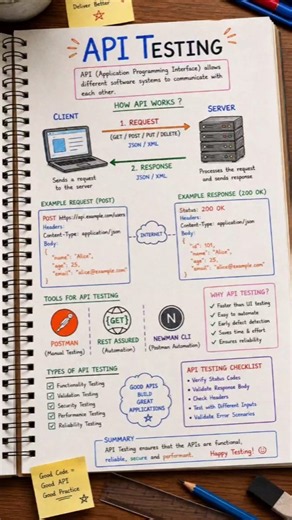 Deliver Better
API TESTING
API (Application Programming Interface) allows
different software systems to communicate with
each other.
HOW API WORKS ?
CLIENT
1. REQUEST
(GET / POST / PUT / DELETE)
JSON / XML
SERVER
2. RESPONSE
JSON / XML
Sends a request
to the server
Processes the request
and sends response
EXAMPLE REQUEST (POST)
POST https://api.example.com/users
Headers:
Content-Type: application/json
Body:
{
"name": "Alice",
"age": 25,
"email": "alice@example.com"
}
INTERNET
EXAMPLE RESPONSE (200 OK)
Status: 200 OK
Headers:
Content-Type: application/json
Body:
{
"id": 101,
"name": "Alice",
"age": 25,
"email": "alice@example.com"
}
TOOLS FOR API TESTING
POSTMAN
(Manual Testing)
{GET}
REST ASSURED
(Automation)
N
NEWMAN CLI
(Postman Automation)
WHY API TESTING?
✓ Faster than UI testing
✓ Easy to automate
✓ Early defect detection
✓ Saves time & effort
✓ Ensures reliability
TYPES OF API TESTING
✓ Functionality Testing
✓ Validation Testing
✓ Security Testing
✓ Performance Testing
✓ Reliability Testing
GOOD APIS
BUILD
GREAT
APPLICATIONS
API TESTING CHECKLIST
• Verify Status Codes
• Validate Response Body
• Check Headers
• Test with Different Inputs
• Validate Error Scenarios
SUMMARY
API Testing ensures that the APIs are functional,
reliable, secure and performant. Happy Testing! ☺
Good Code =
Good API
Good Practice